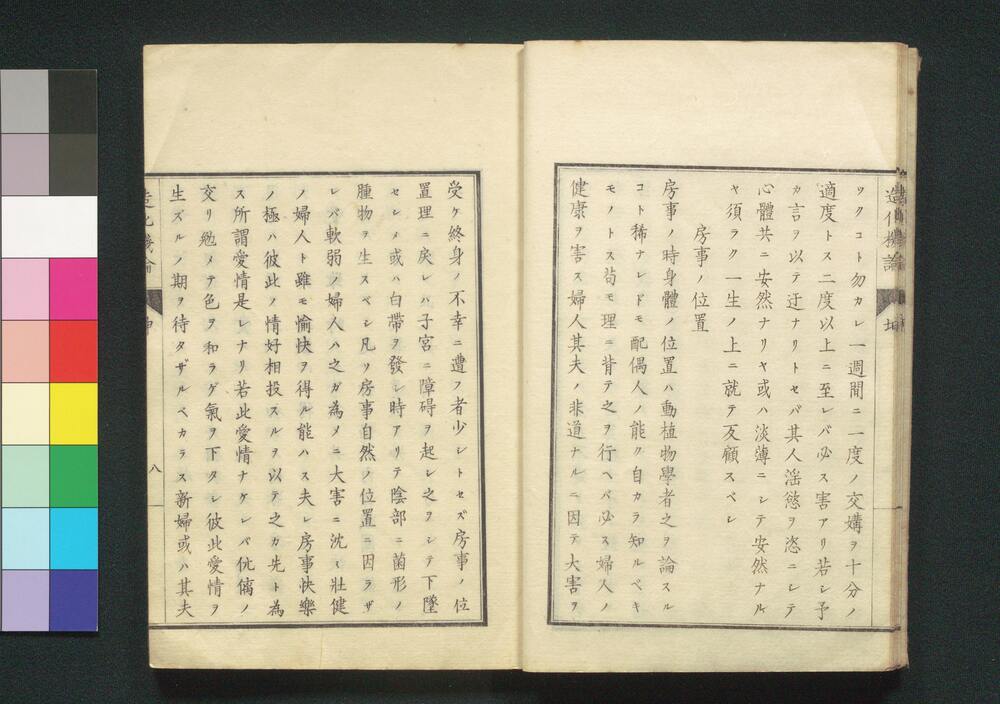 造化機論
坤
ツクコト勿カレ一週間ニ一度ノ交媾ヲ十分ノ
適度トス二度以上ニ至レバ必ス害アリ若シ予
カ言ヲ以テ迂ナリトセバ其人淫慾ヲ恣ニシテ
心體共ニ安然ナリヤ或ハ淡薄ニシテ安然ナル
ヤ須ラク一生ノ上ニ就テ反顧スベシ
房事ノ位置
房事ノ時身體ノ位置ハ動植物學者之ヲ論スル
コト稀ナレドモ配偶人ノ能ク自カラ知ルベキ
モノトス苟モ理ニ背テ之ヲ行ヘバ必ス婦人ノ
健康ヲ害ス婦人其夫ノ非道ナルニ因テ大害ヲ
受ケ終身ノ不幸ニ遭フ者少シトセズ房事ノ位
置理ニ戾レハ子宮ニ障碍ヲ起シ之ヲシテ下墮
セシメ或ハ白帶ヲ發シ時アリテ陰部ニ菌形ノ
腫物ヲ生スベシ凡ソ房事自然ノ位置ニ因ラザ
レバ軟弱ノ婦人ハ之ガ為メニ大害ニ沈ミ壯健
ノ婦人ト雖モ愉快ヲ得ル能ハス夫レ房事快樂
ノ極ハ彼此ノ情好相投スルヲ以テ之カ先ト為
ス所謂愛情是レナリ若此愛情ナケレバ伉儷ノ
交リ勉メテ色ヲ和ラゲ氣ヲ下タシ彼此愛情ヲ
生ズルノ期ヲ待タザルベカラス新婦或ハ其夫
造化機論
坤
八